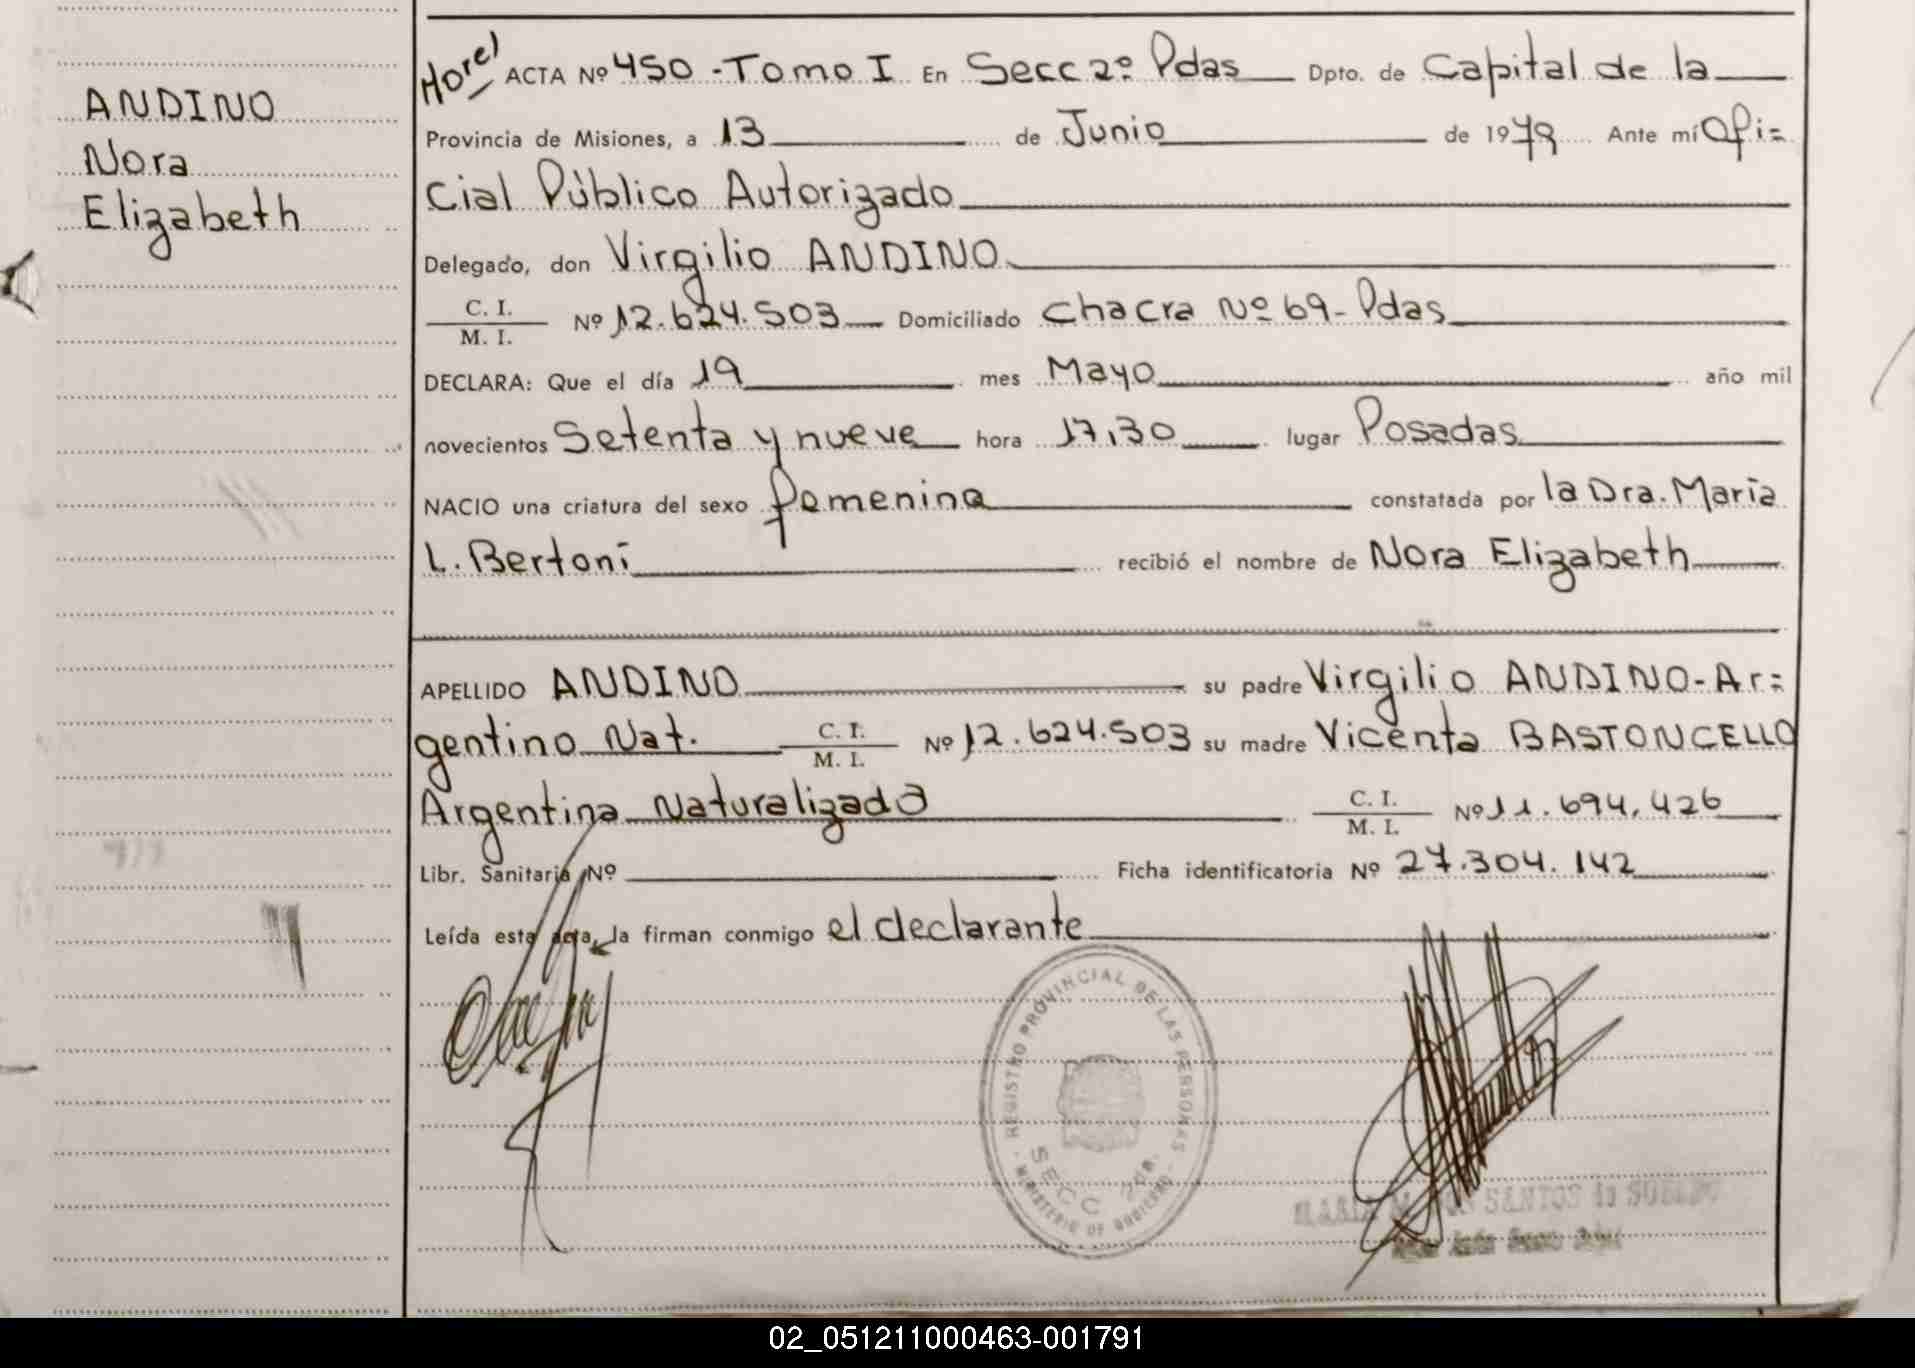 ANDINO
Nora
Elizabeth
ACTA Nº 450 - Tomo I En Secc 2º Pdas Dpto. de Capital de la
Provincia de Misiones, a 13 de Junio de 1979 Ante mí Ofi=
cial Público Autorizado
Delegado, don Virgilio ANDINO
C. I.
M. I.
Nº 12.624.503 Domiciliado Chacra Nº 69 - Pdas
DECLARA: Que el día 19 mes Mayo año mil
novecientos Setenta y nueve hora 17,30 lugar Posadas
NACIO una criatura del sexo femenina constatada por la Dra. María
L. Bertoni recibió el nombre de Nora Elizabeth
APELLIDO ANDINO su padre Virgilio ANDINO - Ar=
gentino Nat. C. I. M. I. Nº 12.624.503 su madre Vicenta BASTONCELLO
Argentina Naturalizada C. I. M. I. Nº 11.694.426
Libr. Sanitaria Nº Ficha identificatoria Nº 27.304.142
Leída esta acta, la firman conmigo el declarante
REGISTRO PROVINCIAL DE LAS PERSONAS
SECC
MINISTERIO DE GOBIERNO
MARIA SANTOS
02_051211000463-001791